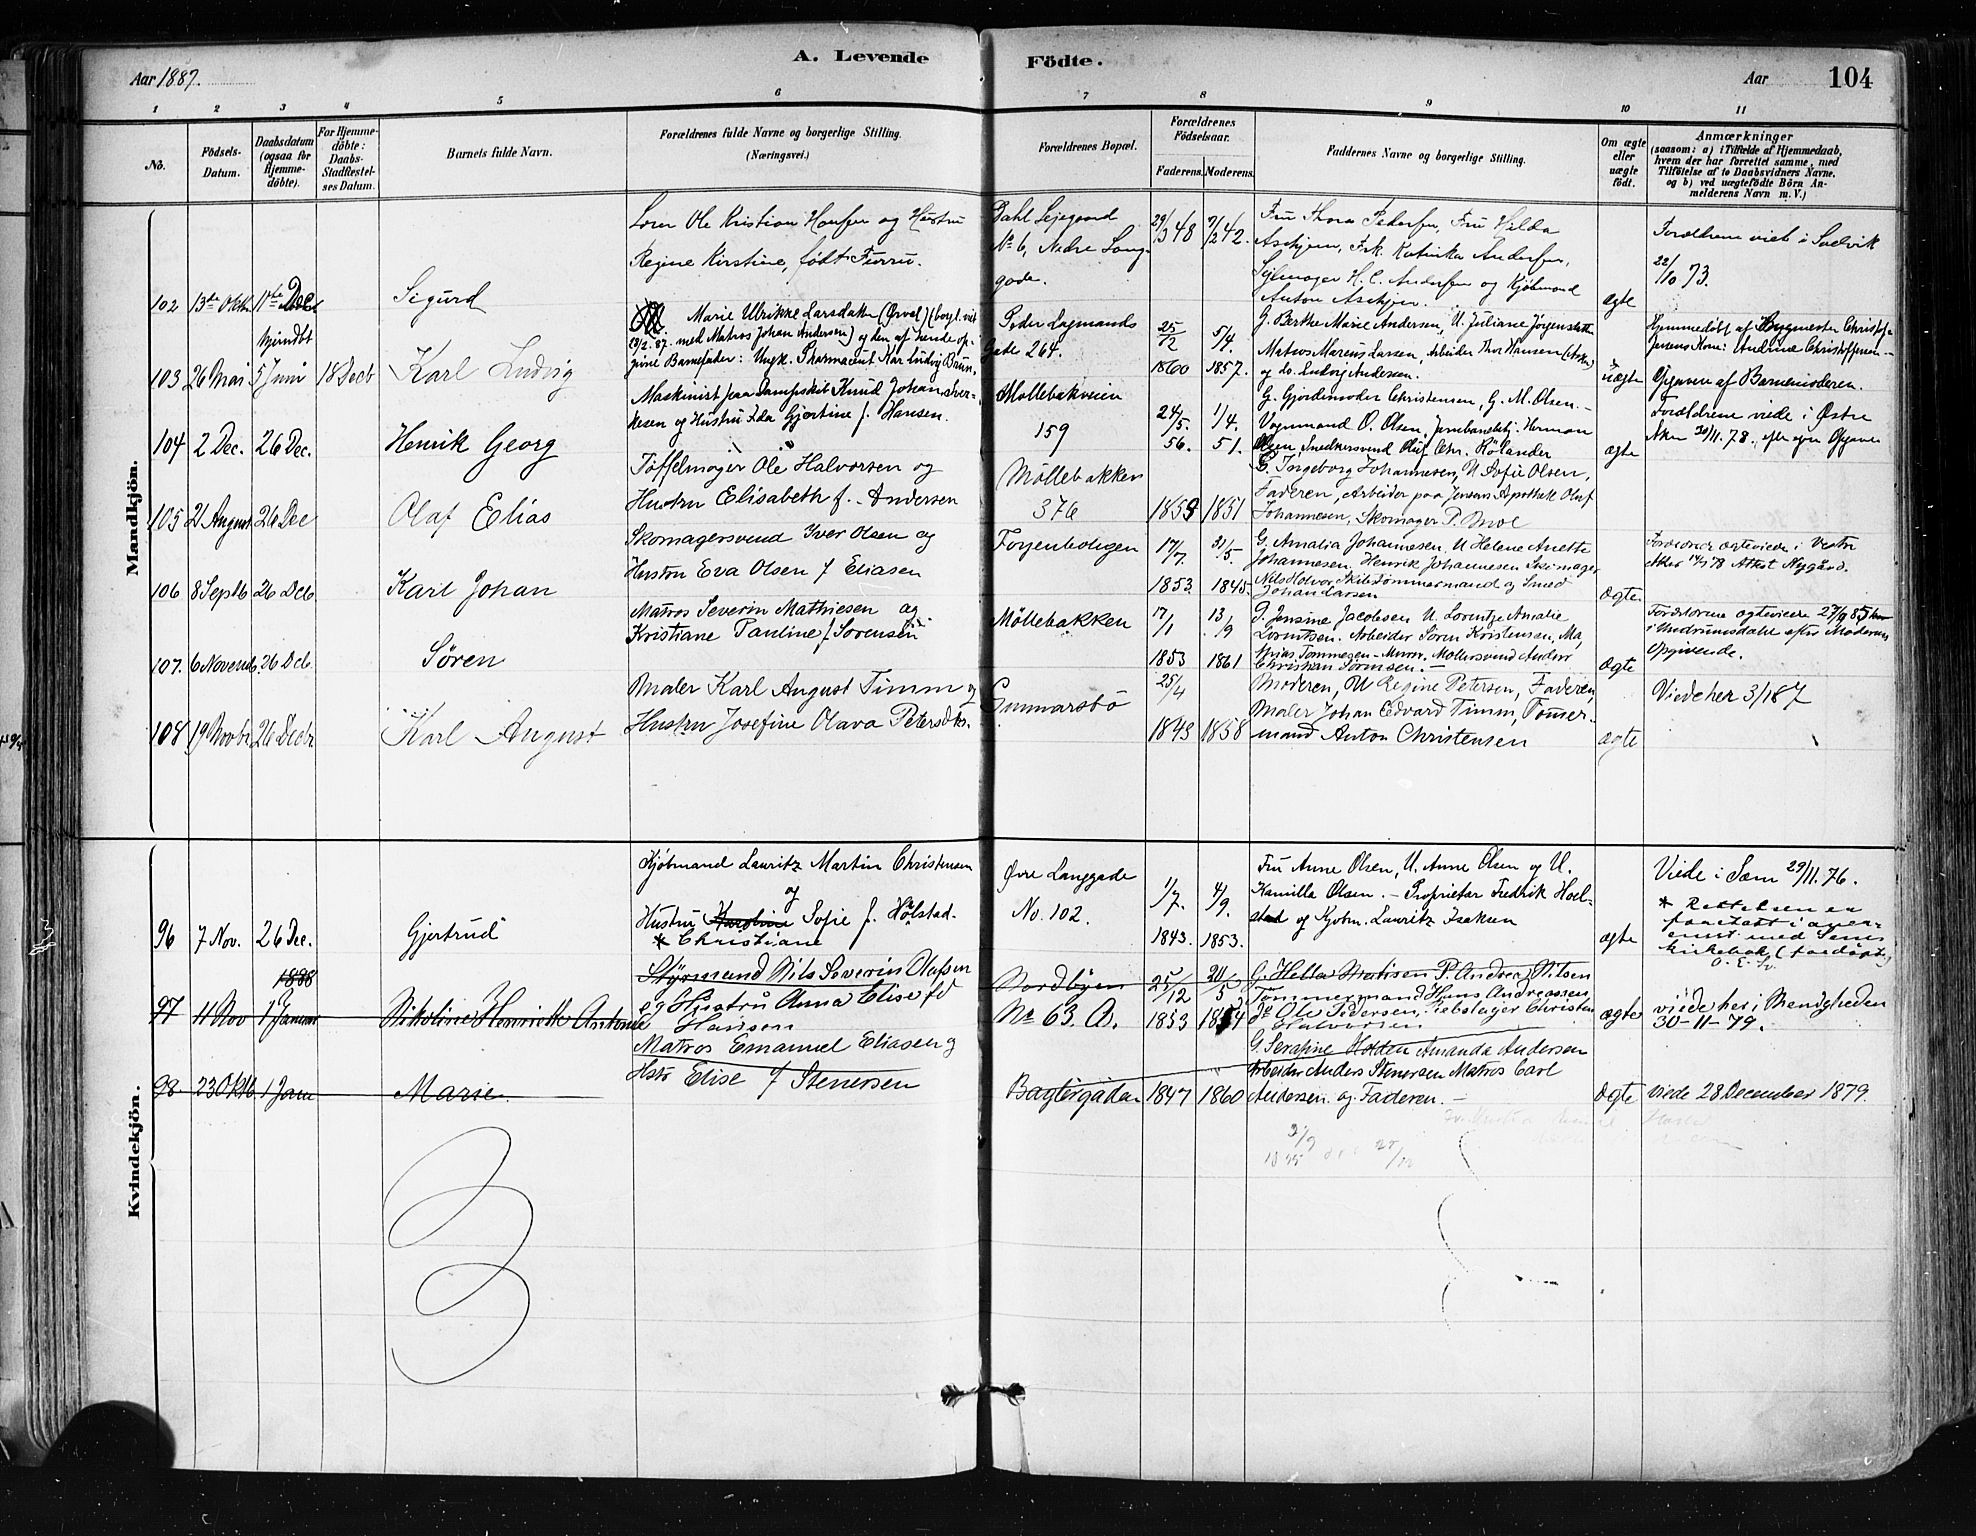 Aar 1887.
A. Levende
Födte.
Aar
104
1 2 3 4 5 6 7 8 9 10 11
No.
Födsels-Datum.
Daabsdatum (ogsaa for Hjemme-döbte).
For Hjemme-döbte: Daabs-Stadfestel-ses Datum.
Barnets fulde Navn.
Forældrenes fulde Navne og borgerlige Stilling. (Næringsvei.)
Forældrenes Bopæl.
Forældrenes Födselsaar.
Faderens. Moderens.
Faddernes Navne og borgerlige Stilling.
Om ægte eller uægte födt.
Anmærkninger (saasom: a) i Tilfælde af Hjemmedaab, hvem der har forrettet samme, med Tilföielse af to Daabsvidners Navne, og b) ved uægtefödte Börn An-melderens Navn m. V.)
Mandkjön.
102 13de Oktr. 11te Dec
Sigurd
Ole Kristian Hansen og Hustru
Regine Kirstine, født Furru.
Dahl Lejegaard
No 6, Nedre Lang-
gade.
29/3 48 7/2 42.
Fru Thora Pedersen, Fru Hilda
Aschjem, Frk. Katinka Andersen,
Sejlmager H. C. Andersen og Kjøbmand
Anton Aschjem.
ægte
Forældrene viet i Svelvik
22/10 73.
103 26 Mai 5 Juni 18 Decb
Karl Ludvig
Marie Ulrikke Larsdatter (Ørvel) (borgl. viet
29/2. 87. med Matros Johan Andersen) og den af hende op-
givne Barnefader: Ungk. Pharmaceut Kar Ludvig Brun.
Peder Lagmands
Gade 264.
25/2 5/4.
1860 1857.
G. Berthe Marie Andersen, U. Juliane Jørgensdatter
Matros Marcus Larsen, Arbeider Thor Hansen
og do. Ludvig Andersen.
uægte
Hjemmedøbt af Bygmester Christof-
Jensens Kone: Andrine Christoffersen
Opgaven af Barnemoderen.
104 2 Dec. 26 Dec.
Henrik Georg
Maskinist paa Dampskib Knud Johan Iver-
kesen og Hustru Ida Gjertine f. Hansen.
Møllebakveien
159
24/5. 1/4.
56. 51.
G. Gjordemoder Christensen, G. M. Olsen.
Vognmand O. Olsen, Jernbanebetj. Herman
Olsen, Snedkersvend Oluf Chr. Rølander
ægte
Forældrene viede i Østre
Aker 30/11. 78. efter egen Opgave
105 21 August 26 Dec
Olaf Elias
Tøffelmager Ole Halvorsen og
Hustru Elisabeth f. Andersen
Møllebakken
376
1859 1851
G. Ingeborg Johannesen, U. Sofie Olsen,
Faderen, Arbeider paa Jensens Apothek Oluf
Johannesen, Skomager P. Moe
106 8 Septb 26 Dcb
Karl Johan
Skomagersvend Iver Olsen og
Hustru Eva Olsen f Eliasen
Foyenboligen
17/7. 31/5.
1853 1845.
G. Amalia Johannesen, U Helene Anette
Johannesen, Henrik Johannesen Skomager
Nils Holvor Skibstømmermand og Smed
Johan Larsen
ægte
Forældrene ægteviede i Vestre
Aker 14/7 78 Attest Nygård.
107. 6 Novemb. 26 Dcb.
Søren
Matros Severin Mathiesen og
Kristiane Pauline f. Sørensen
Møllebakken
17/1 13/9
1853 1861
G. Jensine Jacobsen U. Lorentze Amalie
Lorentsen. Arbeider Søren Kristensen, Ma,
thias Tommesen - Murer. Møllersvend Anders
Christian Sørensen.
ægte
Forældrene ægteviede 27/9 85
i Undrumsdahl efter Moderens
Opgivende.
108 19 Novbr 26 Decbr
Karl August
Maler Karl August Timm og
Hustru Josefine Olava Petersdtr.
Gunnarsbø
25/4
1843 1858
Moderen, U Regine Petersen, Faderen,
Maler Johan Edvard Timm, Tømer-
mand Anton Christensen
ægte
Viede her 3/1 87
Kvindekjön.
96 7 Nov. 26 Dec.
Gjertrud
Kjøbmand Lauritz Martin Christensen
og
Hustru Karoline Sofie f. Hølstad.
* Christiane
Øvre Langgade
No. 102.
1/7. 4/9.
1843. 1853.
Fru Anne Olsen, U. Anne Olsen og U.
Kamilla Olsen. - Proprietær Fredrik Hoel-
stad og Kjøbm. Lauritz Isaksen
ægte
Viede i Sem 29/11. 76.
* Rettelsen er
foretatt i over-
enst. med Sems
kirkebok (fordøpt)
1888
97 11 Nov 1 Januar
Nikoline Henriette Antonie
Styrmand Nils Severin Olafsen
og Hustru Anna Elise fd
Hanson
Nordbyen
No 63. A.
25/12 20/5
1853 1854
G. Hella Mathisen P. Andrea Nilsen
Tømmermand Hans Andreassen
do Ole Pedersen, Rebslager Christen
Halvorsen
ægte
viede her i Menigheden
30-11-79.
98 23 Oktb 1 Jan
Marie
Matros Emanuel Eliasen og
Hstr Elise f Stenersen
Baglergaden
1847 1860
G. Serafine Holden Amanda Andersen
Arbeider Anders Stenersen Matros Carl
Andersen og Faderen.
ægte
viede 28 December 1879.